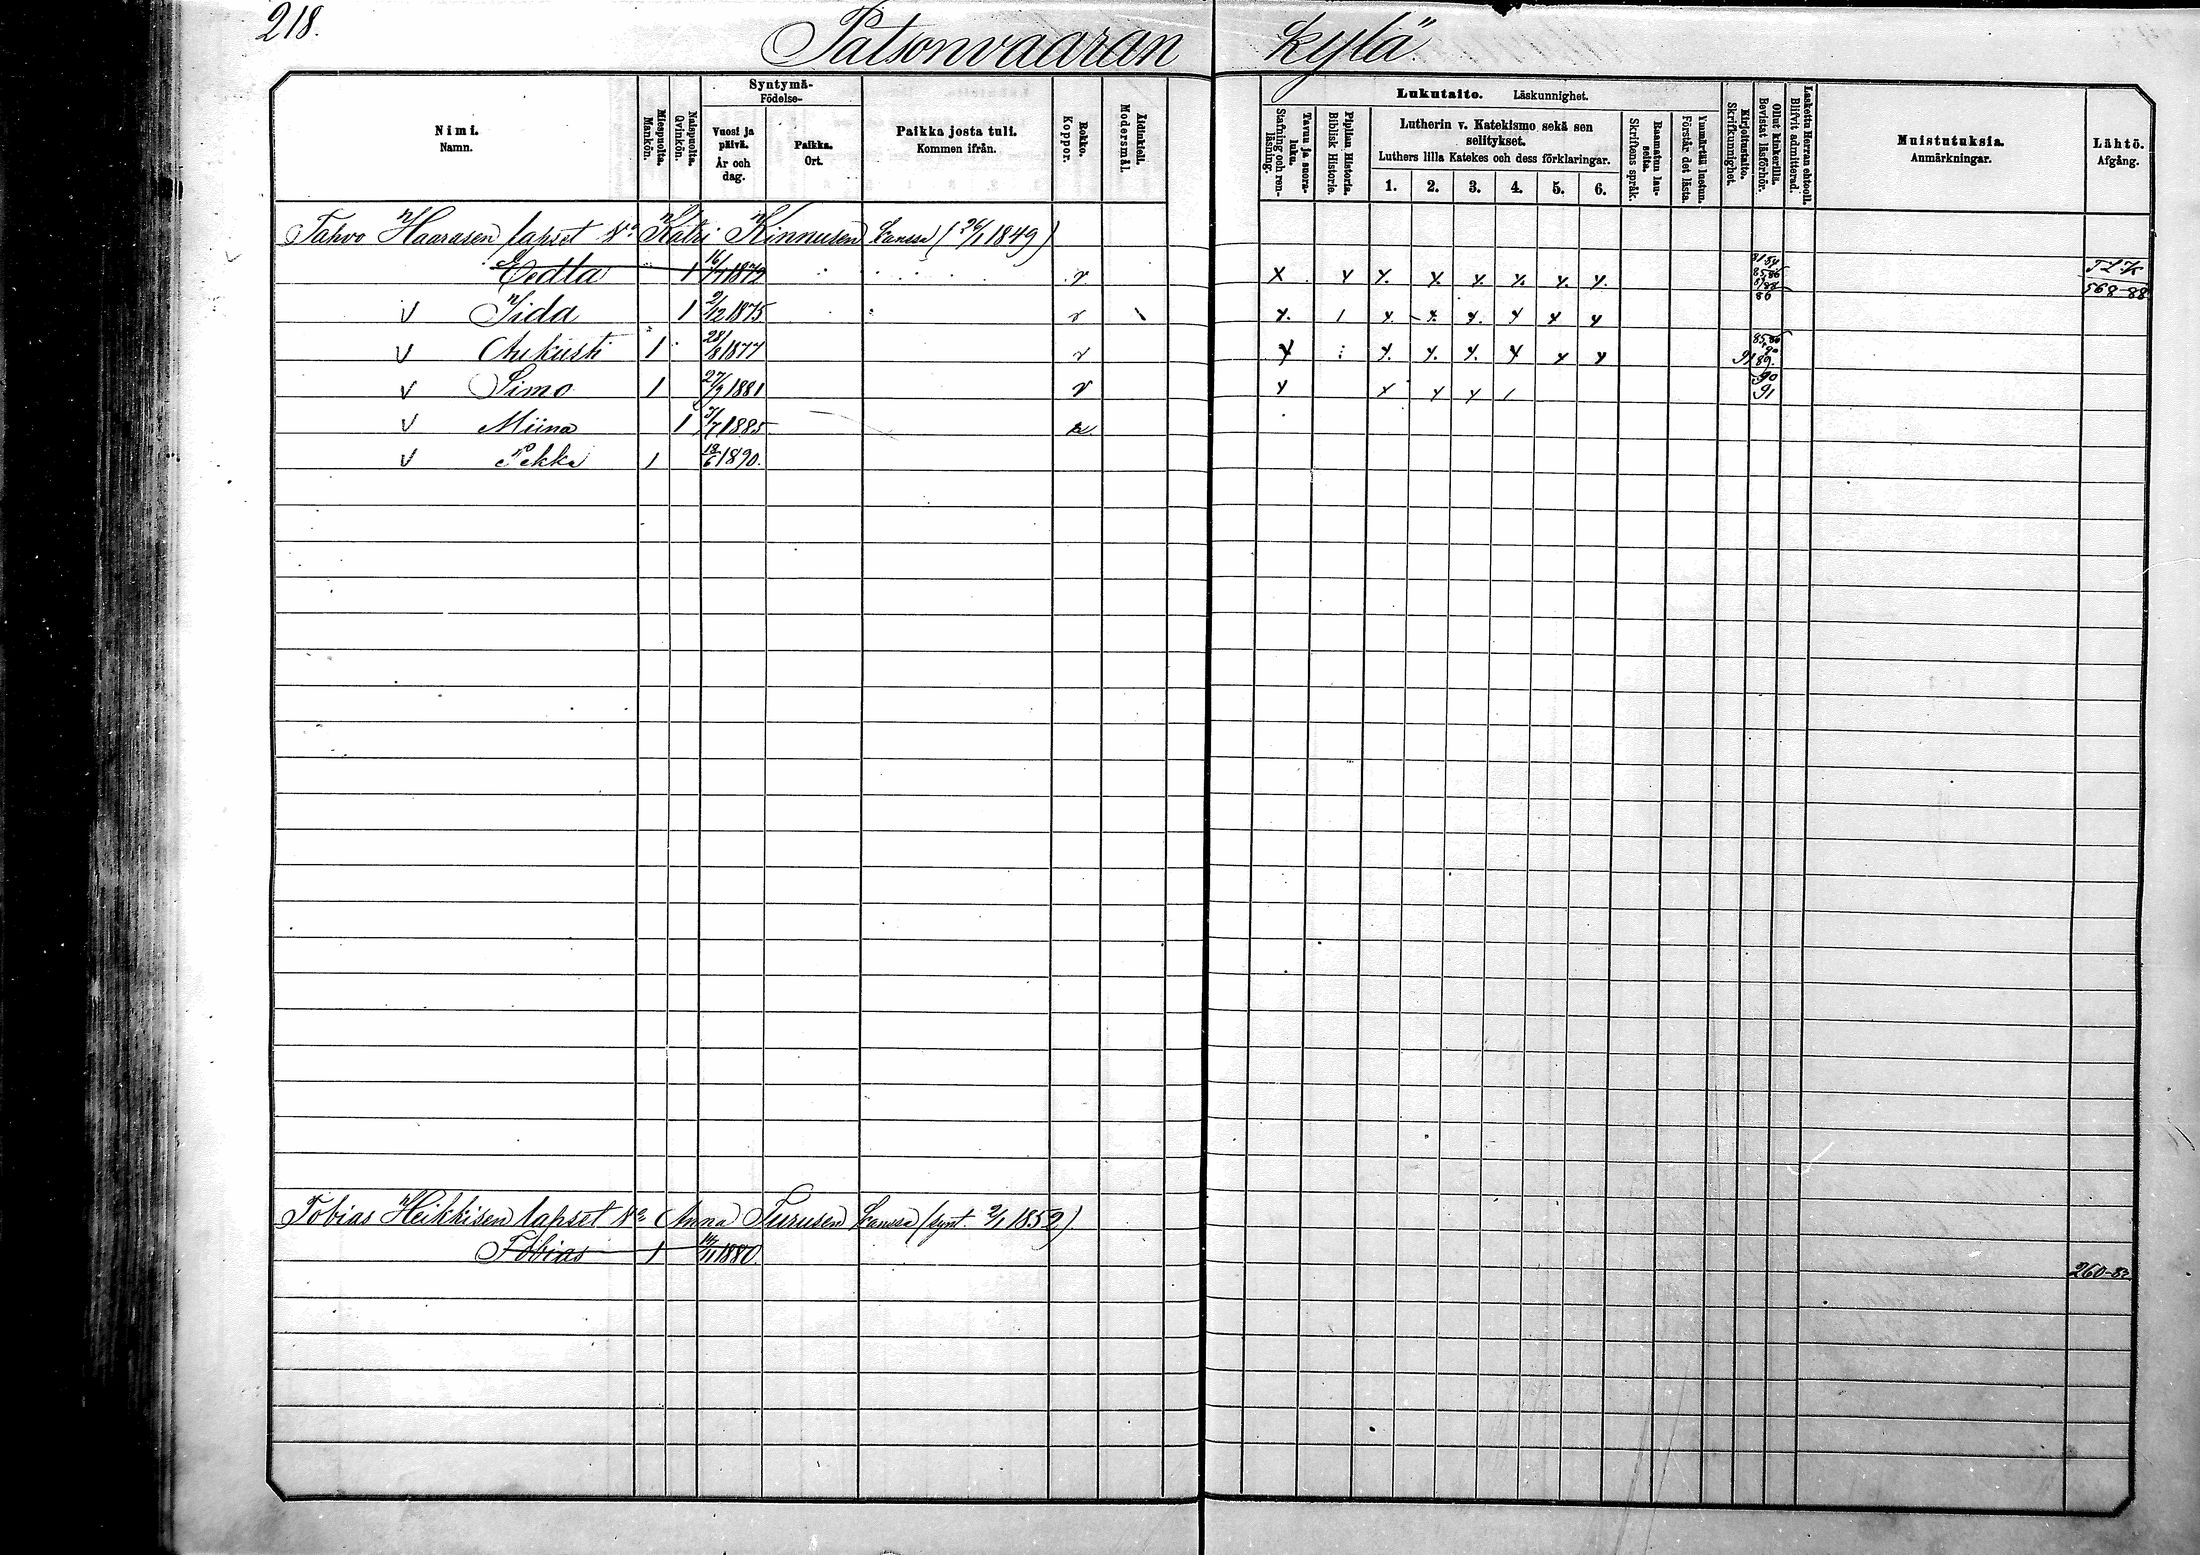 218.
Patsonvaaran kylä
Nimi. Namn.
Miespuolta. Mankön.
Naispuolta. Qvinkön.
Syntymä- Födelse-
Vuosi ja päivä. År och dag.
Paikka. Ort.
Paikka josta tuli. Kommen ifrån.
Rokko. Koppor.
Äidinkieli. Modersmål.
Lukutaito. Läskunnighet.
Tavuu ja suora-luku. Stafning och ren-läsning.
Piplian Historia. Biblisk Historie.
Lutherin v. Katekismo sekä sen selitykset.
Luthers lilla Katekes och dess förklaringar.
1. 2. 3. 4. 5. 6.
Raamatun lauseita. Skriftens språk.
Ymmärtää luetun. Förstår det lästa.
Kirjoitustaito. Skrifkunnighet.
Ollut kinkerillä. Bevistat läsförhör.
Laskettu Herran ehtooll. Blifvit admitterad.
Muistutuksia. Anmärkningar.
Lähtö. Afgång.
Tahvo Haarasen lapset v:o Katri Kinnusen kanssa (26/1 1849)
Eedla 1 16/7 1872 v x y y. y. y. y. y. y. 568-88
v Iida 1 2/12 1875 v y. 1 y. y. y. y y y 86
v Aukusti 1 28/8 1877 v y y. y. y. y y y 91 89.
v Simo 1 27/9 1881 v y y y y / 90 91
v Miina 1 3/7 1885
v Pekka 1 18/6 1890.
Tobias Heikkisen lapset v:o Anna Turusen kanssa (synt. 2/1 1852)
Tobias 1 14/11 1880.
260-83